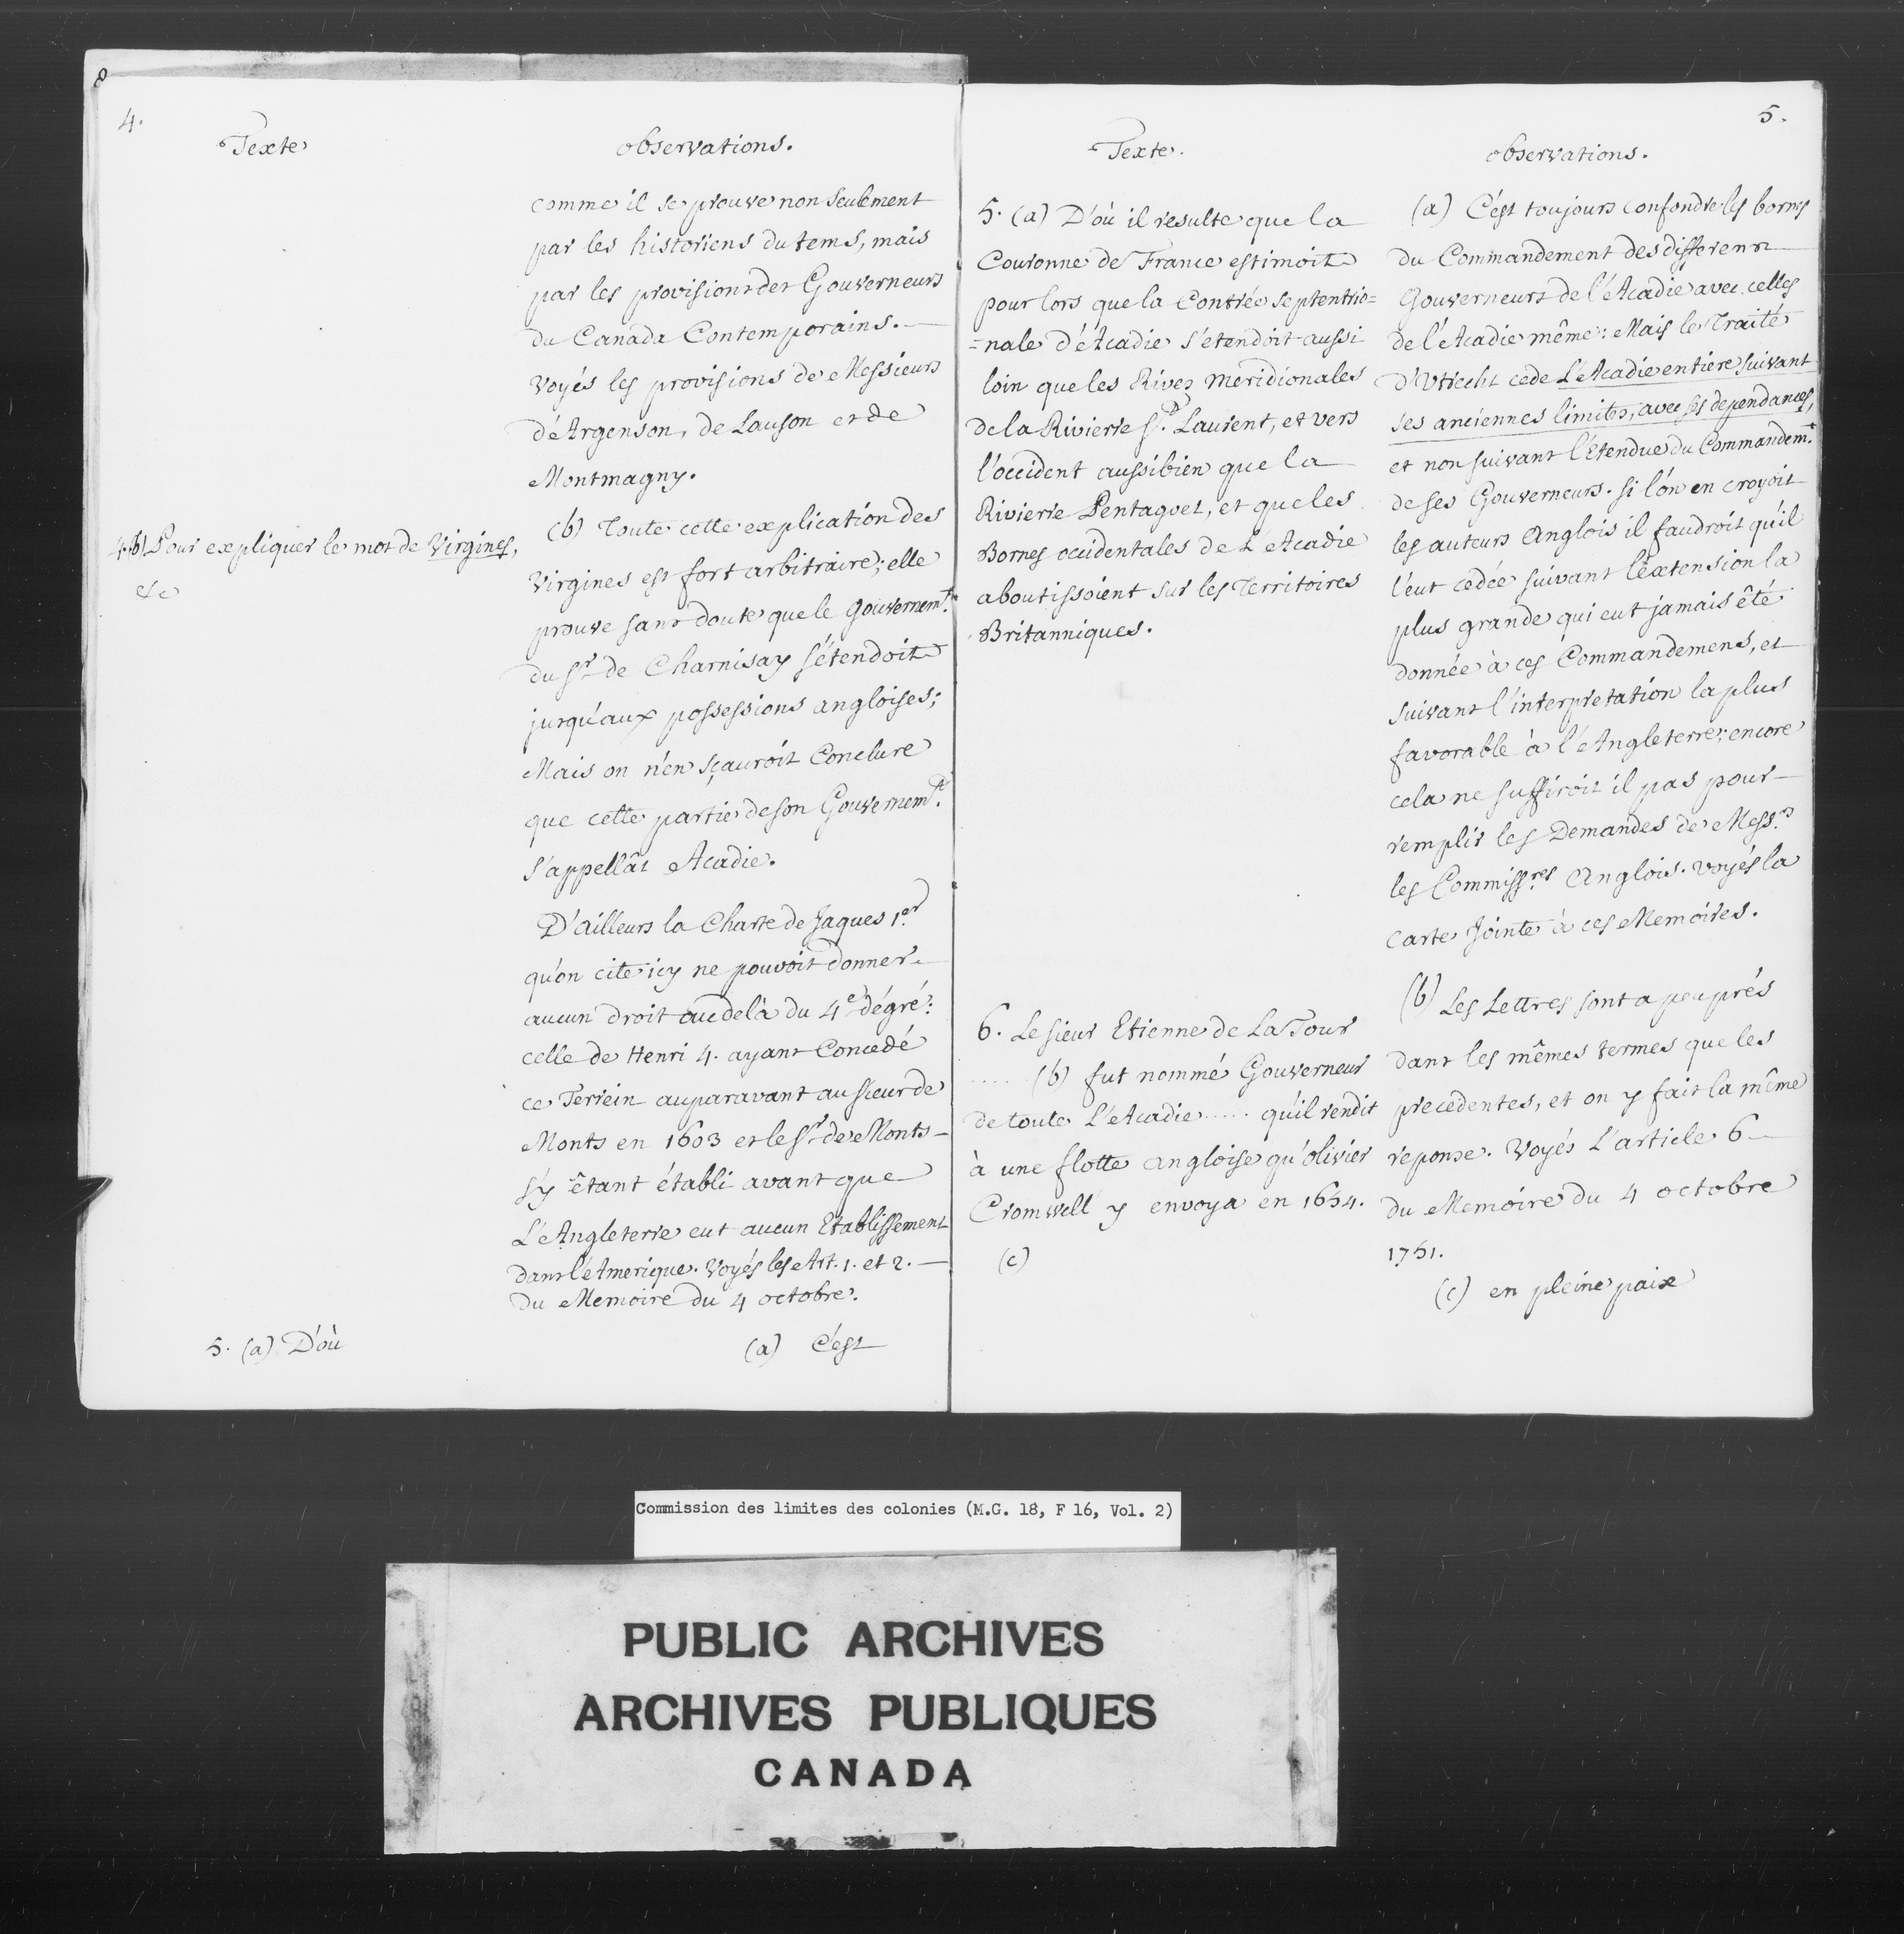 4.
Texte
observations.
comme il se prouve non seulement
par les historiens du tems, mais
par les provisions des Gouverneurs
du Canada Contemporains.
voyés les provisions de Messieurs
d'Argenson, de Lauson et de
Montmagny.
4. (b) Pour expliquer le mot de Virgines,
&c
(b) Toute cette explication des
Virgines est fort arbitraire; elle
prouve sans doute que le Gouvernemt.
du Sr. de Charnisay s'étendoit
jusqu'aux possessions angloises;
Mais on n'en sçauroit Conclure
que cette partie de son Gouvernemt.
s'appellât Acadie.
D'ailleurs la Charte de Jaques 1er.
qu'on cite icy ne pouvoit donner
aucun droit audelà du 4e. dégré:
celle de Henri 4. ayant Concedé
ce Terrein auparavant au Sieur de
Monts en 1603 et le Sr. de Monts
s'y êtant établi avant que
L'Angleterre eut aucun Etablissement
dans l'Amerique. Voyés les Art. 1. et 2.
du Memoire du 4 octobre.
5. (a) D'où
(a) C'est
5.
Texte.
observations.
5. (a) D'où il resulte que la
Couronne de France estimoit
pour lors que la Contrée septentrio=
=nale d'Acadie s'étendoit aussi
loin que les Rives Meridionales
de la Rivierre St. Laurent, et vers
l'occident aussibien que la
Rivierre Pentagoet, et que les
Bornes occidentales de L'Acadie
aboutissoient sur les Territoires
Britanniques.
6. Le sieur Etienne de La Tour
..... (b) fut nommé Gouverneur
de toute L'Acadie ..... qu'il rendit
à une flotte angloise qu'olivier
Cromwell y envoya en 1654.
(c)
(a) C'est toujours confondre les bornes
du Commandement des differens
Gouverneurs de l'Acadie avec celles
de l'Acadie même: Mais le Traité
d'Utrecht cede L'Acadie entiere suivant
ses anciennes limites, avec ses dependances,
et non suivant l'Etendue du Commandemt.
de ses Gouverneurs. si l'on en croyoit
les auteurs Anglois il faudroit qu'il
l'eut cedée suivant l'extension la
plus grande qui eut jamais êté
donnée à ces Commandemens, et
suivant l'interpretation la plus
favorable à l'Angleterre; encore
cela ne suffiroit il pas pour
remplir les Demandes de Messrs.
les Commissres. Anglois. voyés la
Carte Jointe à ces Memoires.
(b) Les Lettres sont a peu près
dans les mêmes termes que les
precedentes, et on y fait la même
reponse. Voyés L'article 6
du Memoire du 4 octobre
1751.
(c) en pleine paix
Commission des limites des colonies (M.G. 18, F 16, Vol. 2)
PUBLIC ARCHIVES
ARCHIVES PUBLIQUES
CANADA